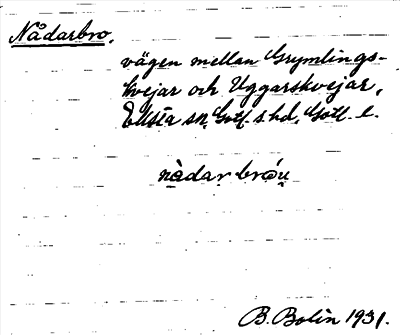 Nådarbro.
vägen mellan Grymlings-
kvejar och Uggarskvejar,
sn, Gotl. s. hd, Gotl. l.
nådar
B. Bolin 1931.